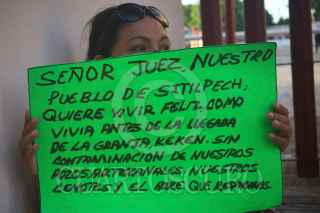 SEÑOR JUEZ NUESTRO
PUEBLO DE SITILPECH,
QUIERE VIVIR FELIZ, COMO
VIVIA ANTES DE LA LLEGADA
DE LA GRANJA KEKEN. SIN
CONTAMINACION DE NUESTROS
POZOS ARTESANALES, NUESTROS
CENOTES Y EL AIRE QUE RESPIRAMOS.